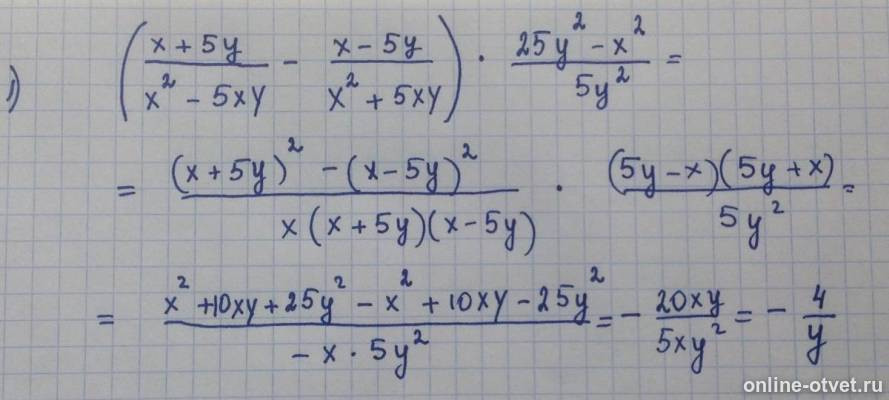 1) ( (x + 5y)/(x² - 5xy) - (x - 5y)/(x² + 5xy) ) · (25y² - x²)/(5y²) =
= ((x + 5y)² - (x - 5y)²)/(x(x + 5y)(x - 5y)) · ((5y - x)(5y + x))/(5y²) =
= (x² + 10xy + 25y² - x² + 10xy - 25y²)/(-x · 5y²) = - (20xy)/(5xy²) = - 4/y
online-otvet.ru